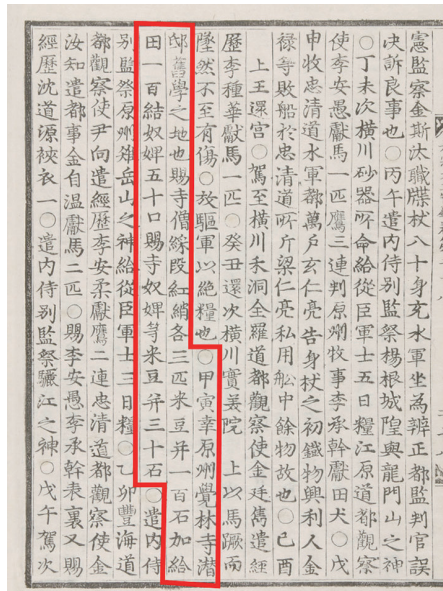 憲監察金斯汰職牒杖八十身充水軍坐為辨正都監判官誤
決訴良事也○丙午遣內侍別監祭楊根城隍與龍門山之神
○丁未次橫川砂器所命給從臣軍士五日糧江原道都觀察
使李安愚獻馬一匹鷹三連判原州牧事李承幹獻田犬○戊
申收忠清道水軍都萬戶玄仁亮告身杖之初鐵物興利人金
祿等敗船於忠清道所斤梁仁亮私用船中餘物故也○己酉
上王還宮○駕至橫川禾洞全羅道都觀察使金廷雋遣經
歷李種華獻馬一匹○癸丑還次橫川實美院 上以馬蹶而
墜然不至有傷○放驅軍以絕糧也○甲寅幸原州覺林寺潛
邸舊學之地也賜寺僧綵段紅綃各三匹米豆幷一百石加給
田一百結奴婢五十口賜寺奴婢等米豆幷三十石○遣內侍
別監祭原州雉岳山之神給從臣軍士三日糧○乙卯豐海道
都觀察使尹向遣經歷李安柔獻鷹二連忠清道都觀察使金
汝知遣都事金自溫獻馬二匹○賜李安愚李承幹表裏又賜
經歷沈道源裌衣一○遣內侍別監祭驪江之神○戊午駕次